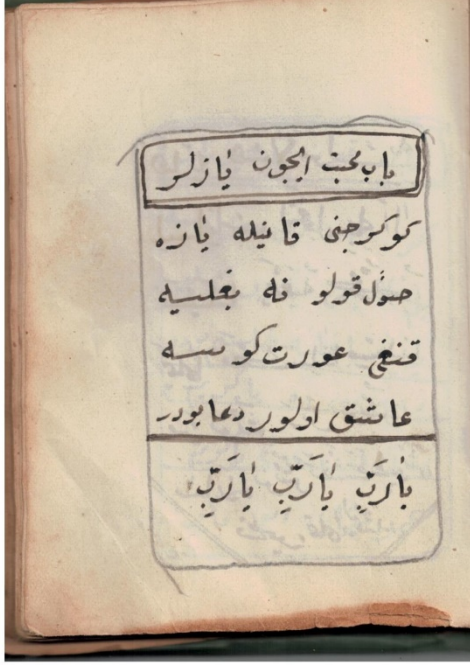 باب محبت ایچون یازلر
كوكرجنی قانیله یازه
صول قولو نه بغلیه
قنغی عورت كورسه
عاشق اولور دعا بودر
يَارَبِّ يَارَبِّ يَارَبِّ